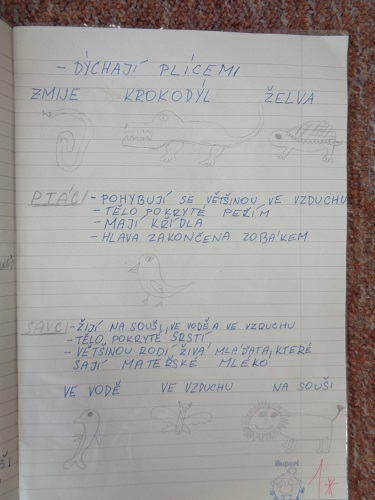 - DÝCHAJÍ PLÍCEMI
ZMIJE KROKODÝL ŽELVA
PTÁCI - POHYBUJÍ SE VĚTŠINOU VE VZDUCHU
- TĚLO POKRYTÉ PEŘÍM
- MAJÍ KŘÍDLA
- HLAVA ZAKONČENA ZOBÁKEM
SAVCI - ŽIJÍ NA SOUŠI, VE VODĚ A VE VZDUCHU
- TĚLO POKRYTÉ SRSTÍ
- VĚTŠINOU RODÍ ŽIVÁ MLÁĎATA, KTERÉ
SAJÍ MATEŘSKÉ MLÉKO
VE VODĚ VE VZDUCHU NA SOUŠI
1*